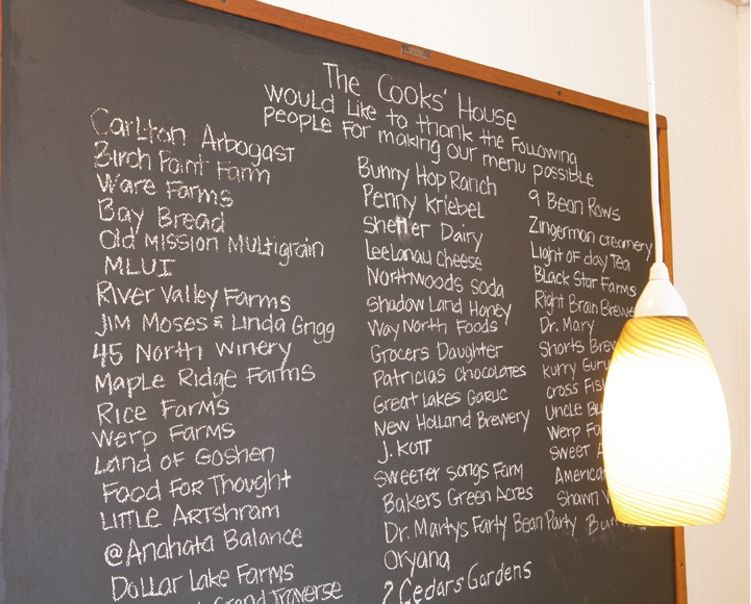 The Cooks' House
would like to thank the following
people for making our menu possible
Carlton Arbogast
Birch Point Farm
Ware Farms
Bay Bread
Old Mission Multigrain
MLUI
River Valley Farms
Jim Moses & Linda Grigg
45 North Winery
Maple Ridge Farms
Rice Farms
Werp Farms
Land of Goshen
Food For Thought
Little Artshram
@Anahata Balance
Dollar Lake Farms
Grand Traverse
Bunny Hop Ranch
Penny Kriebel
Shetler Dairy
Leelanau cheese
Northwoods soda
Shadow Land Honey
Way North Foods
Grocers Daughter
Patricias Chocolates
Great Lakes Garlic
New Holland Brewery
J. Kott
Sweeter songs Farm
Bakers Green Acres
Dr. Martys Farty Bean Party
Oryana
2 Cedars Gardens
9 Bean Rows
Zingerman creamery
Light of day Tea
Black Star Farms
Right Brain
Dr. Mary
Shorts
Kurry
cross
Uncle
Werp
Sweet
American
Shawn